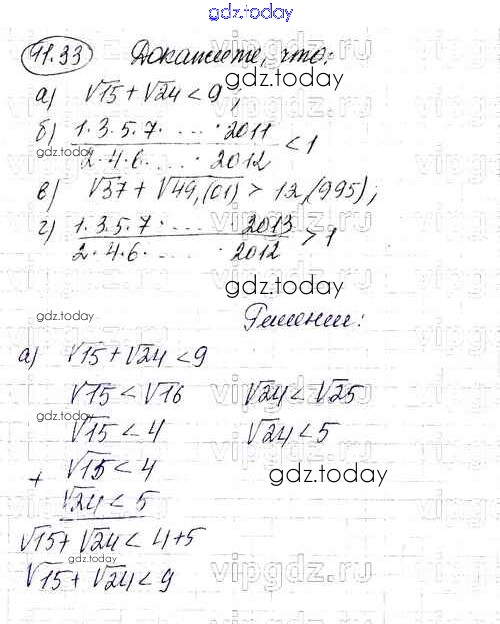 gdz.today
41.33 Докажите, что:
gdz.today
а) √15 + √24 < 9;
б) 1·3·5·7· .... · 2011 / 2·4·6· .... · 2012 < 1
gdz.today
в) √37 + √49,(01) > 12,(995);
г) 1·3·5·7· .... · 2013 / 2·4·6· .... · 2012 > 1
gdz.today
gdz.today
Решение:
а) √15 + √24 < 9
vipgdz.ru
√15 < √16 √24 < √25
gdz.today
√15 < 4 √24 < 5
+ √15 < 4
gdz.today
√24 < 5
√15 + √24 < 4+5
gdz.today
vipgdz.ru
√15 + √24 < 9